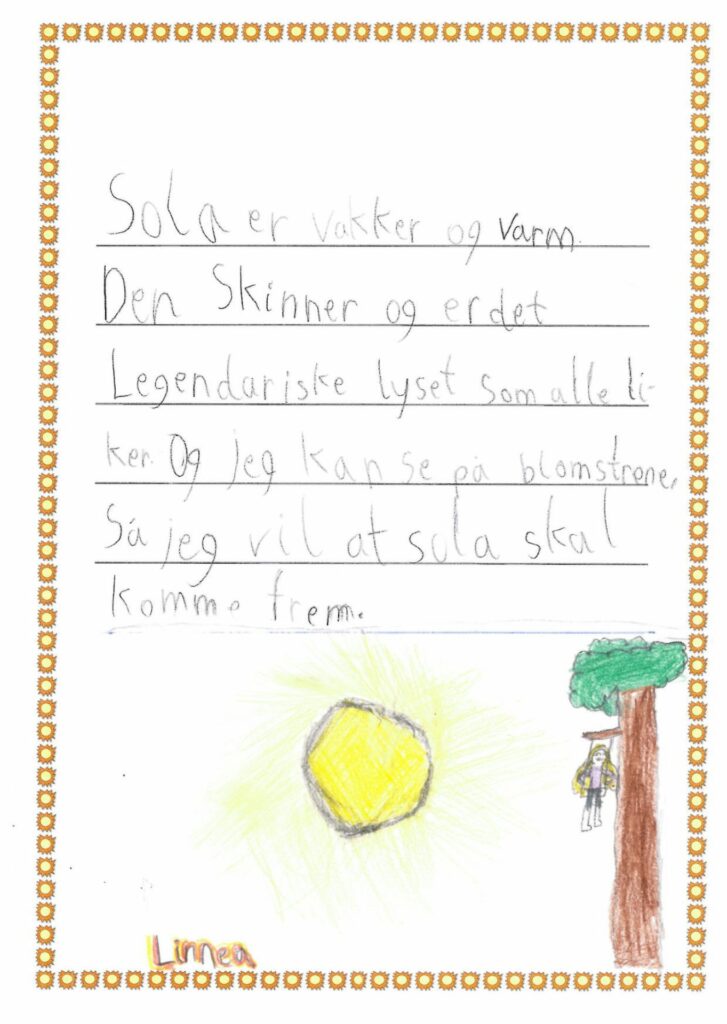 Sola er vakker og varm
Den Skinner og er det
Legendariske lyset som alle li-
ker. Og jeg kan se på blomstrene.
Så jeg vil at sola skal
komme frem.
Linnea